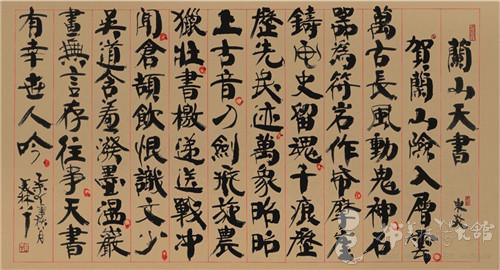 蘭山天書
賀蘭山險入層雲
萬古長風動鬼神石
器為符岩作帘摩崖
鑄史史留魂千痕歷
歷先民迹萬象昭昭
上古音刀劍飛旋農
獵壯書檄遞送戰冲
聞倉頡飲恨識文少
吳道含羞潑墨溫巖
畫無言存往事天書
有幸世人吟